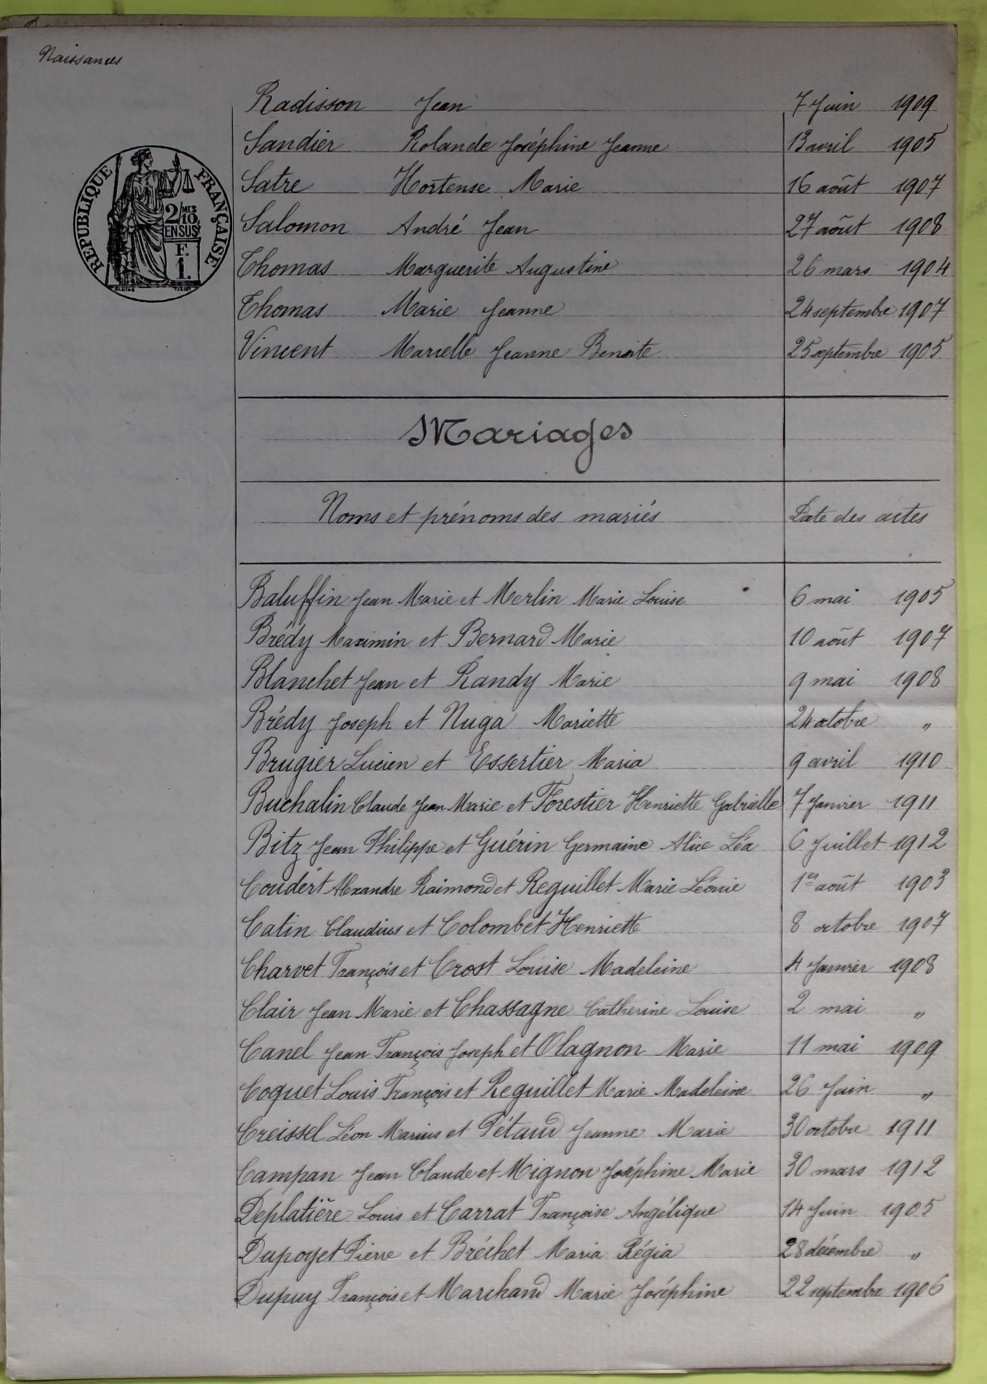 Naissances
Radisson Jean 7 Juin 1909
Sandier Rolande Joséphine Jeanne 13 avril 1905
Satre Hortense Marie 16 août 1907
Salomon André Jean 27 août 1908
Thomas Marguerite Augustine 26 mars 1904
Thomas Marie Jeanne 24 septembre 1907
Vincent Marcelle Jeanne Benoite 25 septembre 1905
RÉPUBLIQUE FRANÇAISE
2/10 MES
EN SUS
F.
1.
Mariages
Noms et prénoms des mariés Date des actes
Baluffin Jean Marie et Merlin Marie Louise 6 mai 1905
Brédy Maximin et Bernard Marie 10 août 1907
Blanchet Jean et Randy Marie 9 mai 1908
Brédy Joseph et Nuga Mariette 24 octobre "
Brugier Lucien et Essertier Maria 9 avril 1910
Buchalin Claude Jean Marie et Forestier Henriette Gabrielle 7 Janvier 1911
Bitz Jean Philippe et Guérin Germaine Alice Léa 6 Juillet 1912
Coudert Alexandre Raimond et Reguillet Marie Léonie 1er août 1903
Catin Claudius et Colombet Henriette 8 octobre 1907
Charvet François et Crost Louise Madeleine 4 Janvier 1908
Clair Jean Marie et Chassagne Catherine Louise 2 mai "
Canel Jean François Joseph et Olagnon Marie 11 mai 1909
Coquet Louis François et Reguillet Marie Madeleine 26 Juin "
Creissel Léon Marius et Pétaud Jeanne Marie 30 octobre 1911
Campan Jean Claude et Mignon Joséphine Marie 30 mars 1912
Deplatière Louis et Carrat Françoise Angélique 14 Juin 1905
Dupoyet Pierre et Bréchet Maria Régia 28 décembre "
Dupuy François et Marchand Marie Joséphine 22 septembre 1906